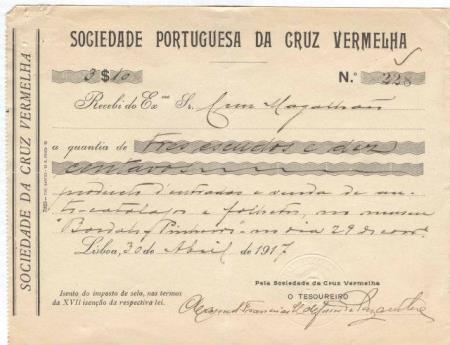 SOCIEDADE PORTUGUESA DA CRUZ VERMELHA
3$10
N.º 228
Recebi do Ex.mo Sr. Cruz Magalhães
a quantia de tres escudos e dez
centavos
producto d'entradas e venda de
catalogos e folhetos, no museu
"Bordalo Pinheiro" no dia 29 do corr.
Lisboa, 30 de Abril de 1917
Pela Sociedade da Cruz Vermelha
O TESOUREIRO
Isento do imposto de selo, nos termos
da XVII isenção da respectiva lei.
SOCIEDADE DA CRUZ VERMELHA